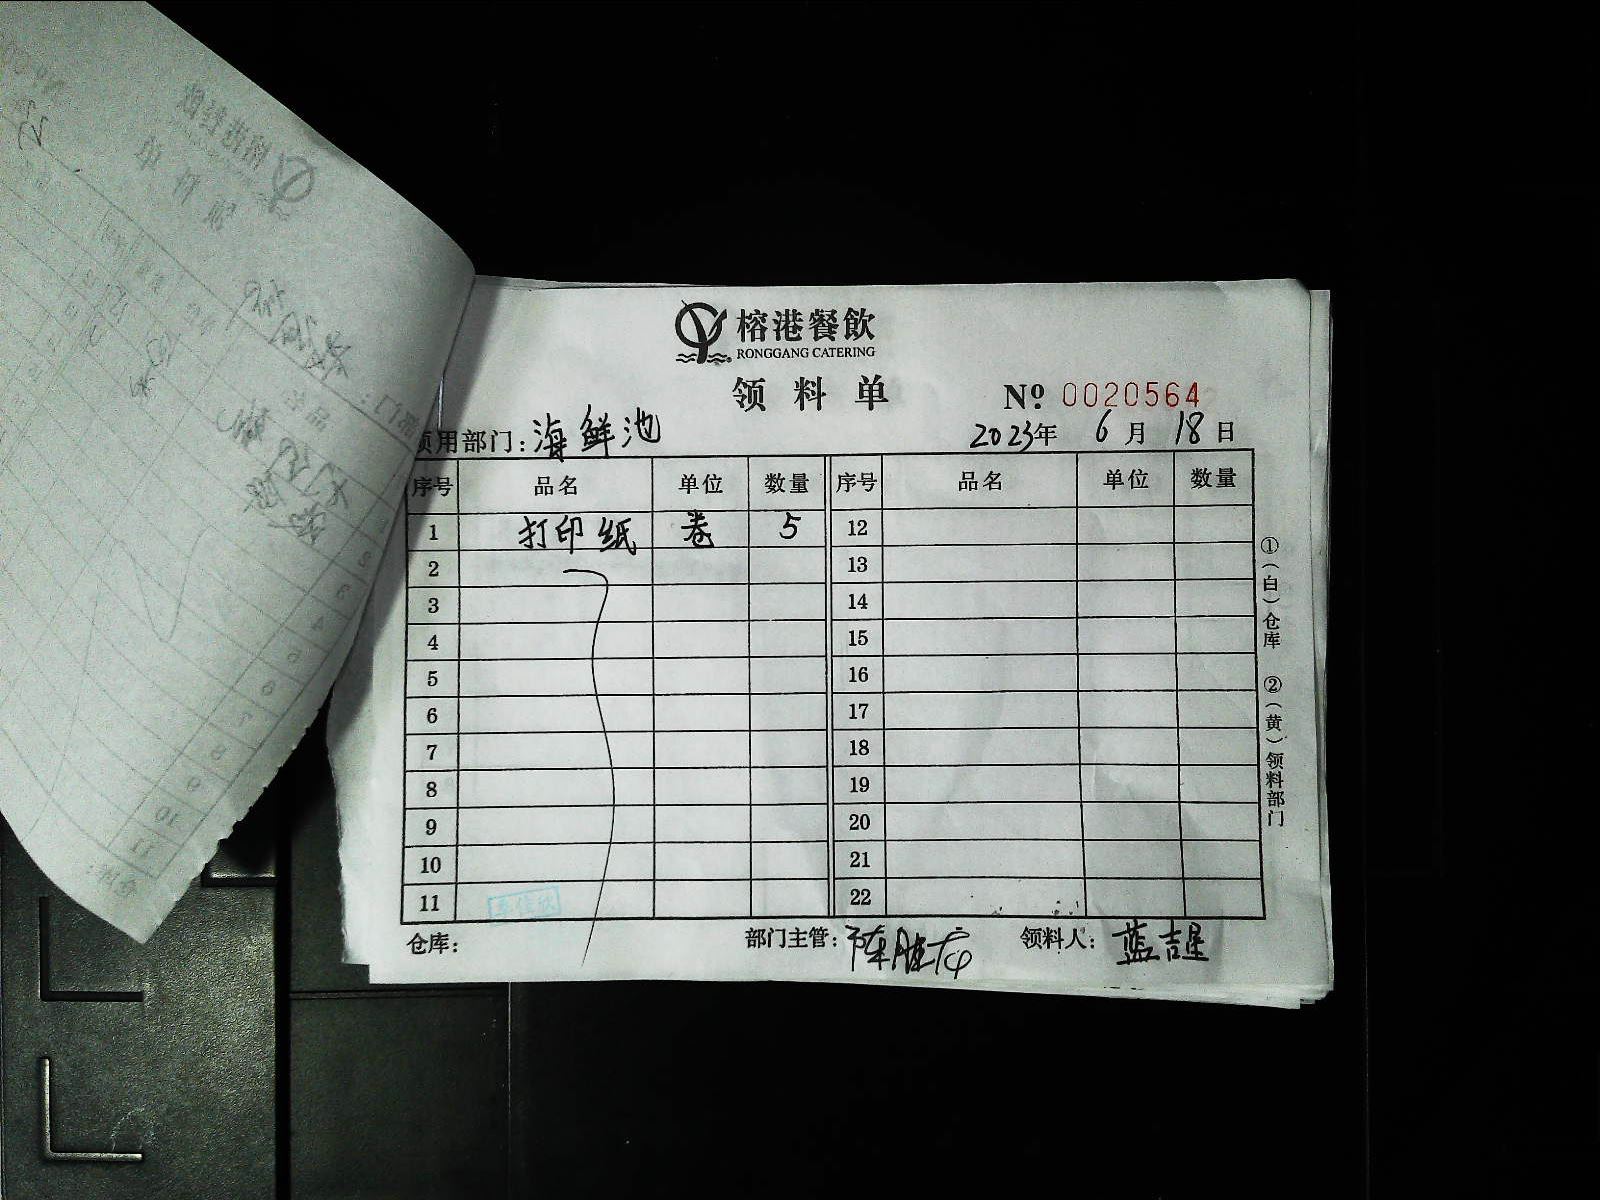 榕港餐飲
RONGGANG CATERING
领料单
№ 0020564
领用部门：海鲜池 2023年 6月 18日
序号 品名 单位 数量 序号 品名 单位 数量
1 打印纸 卷 5 12
2 13
3 14
4 15
5 16
6 17
7 18
8 19
9 20
10 21
11 22
①（白）仓库 ②（黄）领料部门
仓库： 部门主管：陈胜龙 领料人：蓝吉星